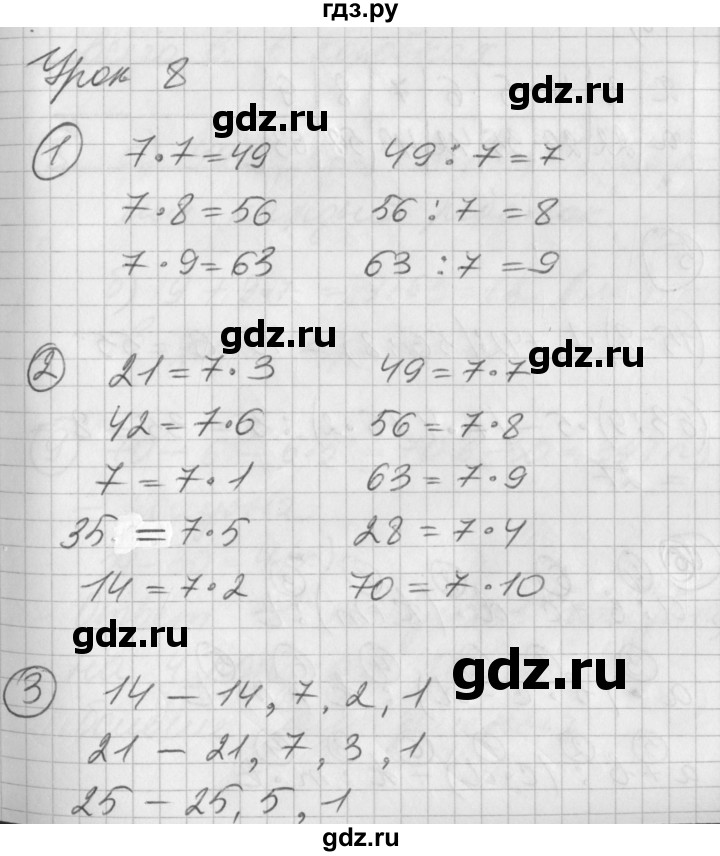 гдз.ру
Урок 8
gdz.ru
gdz.ru
1 7·7=49 49:7=7
7·8=56 56:7=8
7·9=63 63:7=9
gdz.ru
gdz.ru
2 21=7·3 49=7·7
42=7·6 56=7·8
7=7·1 63=7·9
35=7·5 28=7·4
14=7·2 70=7·10
gdz.ru
gdz.ru
3 14 – 14, 7, 2, 1
21 – 21, 7, 3, 1
25 – 25, 5, 1
gdz.ru